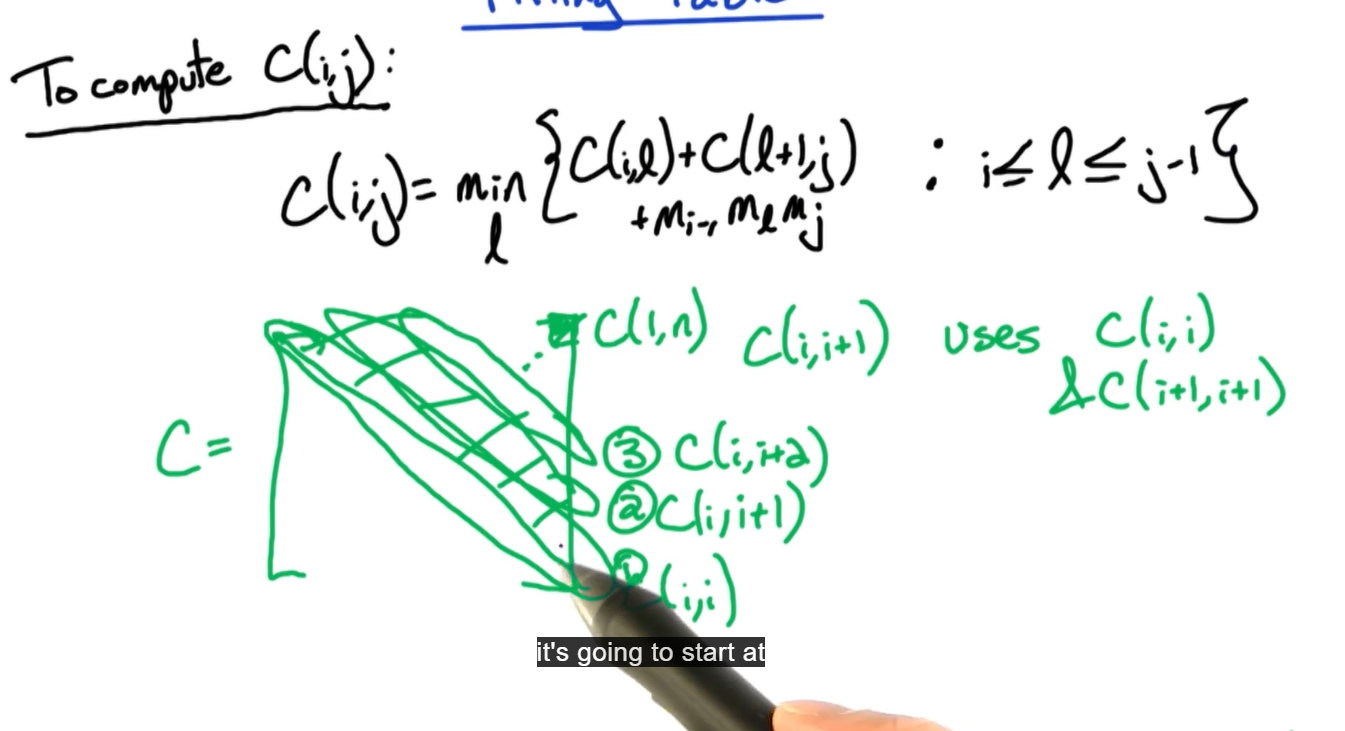 To compute C(i,j):
C(i,j) = min { C(i,l) + C(l+1,j) : i ≤ l ≤ j-1 }
l + m_{i-1} m_l m_j
C(1,n) C(i,i+1) uses C(i,i)
& C(i+1,i+1)
C =
③ C(i,i+2)
② C(i,i+1)
① C(i,i)
it's going to start at